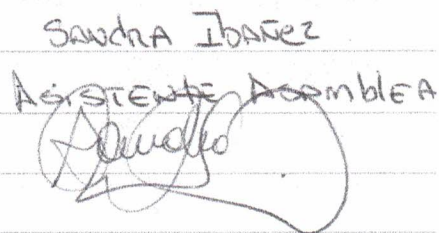 Sandra Ibañez
Asistente Asamblea
Sandra